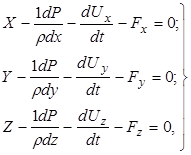 X - \frac{1dP}{\rho dx} - \frac{dU_x}{dt} - F_x = 0;
Y - \frac{1dP}{\rho dy} - \frac{dU_y}{dt} - F_y = 0;
Z - \frac{1dP}{\rho dz} - \frac{dU_z}{dt} - F_z = 0,